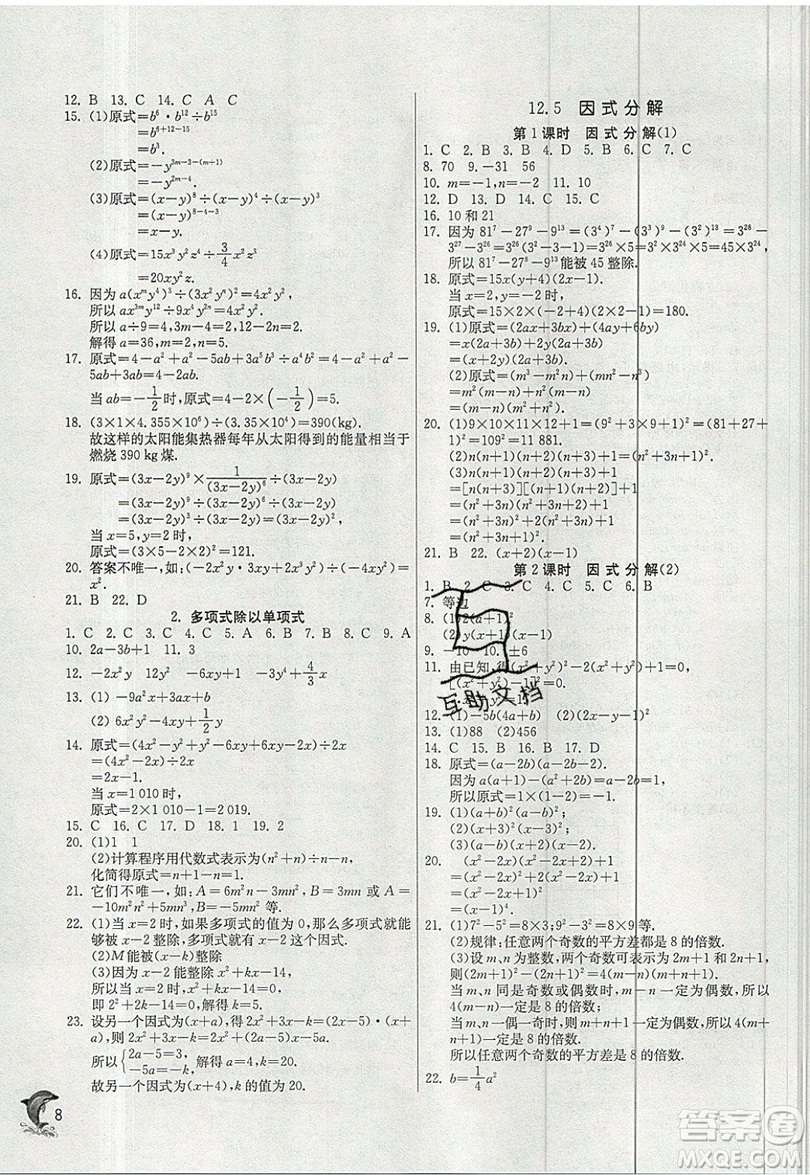 12. B  13. C  14. C  A  C
15. (1)原式=b⁶·b¹²÷b¹⁵
=b⁶⁺¹²⁻¹⁵
=b³.
(2)原式=-y^{3m-3-(m+1)}
=-y^{2m-4}.
(3)原式=(x-y)⁸÷(x-y)⁴÷(x-y)³
=(x-y)^{8-4-3}
=x-y.
(4)原式=15x³y³z⁴÷\frac{3}{4}x²z³
=20xy²z.
16. 因为a(x^m y⁴)³÷(3x²yⁿ)²=4x²y²,
所以ax^{3m}y¹²÷9x⁴y^{2n}=4x²y²,
所以a÷9=4,3m-4=2,12-2n=2.
解得a=36,m=2,n=5.
17. 原式=4-a²+a²-5ab+3a⁵b³÷a⁴b²
=4-a²+a²-5ab+3ab=4-2ab.
当ab=-\frac{1}{2}时,原式=4-2×(-\frac{1}{2})=5.
18. (3×1×4.355×10⁶)÷(3.35×10⁴)=390(kg).
故这样的太阳能集热器每年从太阳得到的能量相当于
燃烧390 kg煤.
19. 原式=(3x-2y)⁹×\frac{1}{(3x-2y)⁶}÷(3x-2y)
=(3x-2y)⁹÷(3x-2y)⁶÷(3x-2y)
=(3x-2y)³÷(3x-2y)=(3x-2y)².
当x=5,y=2时,
原式=(3×5-2×2)²=121.
20. 答案不唯一,如(-2x³y⁴)·(-2xy)÷(-4xy²)=
-x³y³.
21. B  22. D
2. 多项式除以单项式
1. C  2. C  3. D  4. D  5. B  6. A  7. B  8. C  9. A
10. 2a-3b+1  11. 3
12. -2x²y  6x²y-xy-1  -3y⁴+\frac{4}{3}x
13. (1)-9a²x+3ax³
(2) 6x²y²-4xy+\frac{1}{2}y
14. 原式=(4x²-y²+y²-6xy)÷2x+3y-1
=(4x²-6xy)÷2x+3y-1
=2x-3y+3y-1
=2x-1.
当x=1 010时,
原式=2×1 010-1=2 019.
15. C  16. C  17. C  18. 1  19. 2
20. (1)1  1
(2)计算程序用代数式表示为(n²+n)÷n-n,
化简得原式=n+1-n=1.
21. 它们不唯一,如:A=6m²n-3mn²,B=6m³n-3m²n²,C=4m²n-2mn²或A=
-10m²n+5mn²等.
22. (1)当x=2时,如果多项式的值为0,那么多项式就能
够被x-2整除,多项式有x-2这个因式.
(2)M能被(x-k)整除
(3)因为x-2能整除x²+kx-14,
所以当x-2=0时,x²+kx-14=0.
当x=2时,x²+kx-14=4+2k-14=0,
即2²+2k-14=0,解得k=5.
23. 设另一个因式为(x+a),得2x²+3x-k=(2x-5)·(x+
a),则2x²+3x-k=2x²+(2a-5)x-5a.
所以{2a-5=3, -5a=-k. 解得a=4,k=20.
故另一个因式为(x+4),k的值为20.
8
12.5  因式分解
第1课时  因式分解(1)
1. C  2. B  3. B  4. B  5. D  6. C  7. A
8. 70  9. -31  56
10. m=-1,n=-2  11. 10
12. D  13. D  14. C  15. D
16. 10和21
17. 因为81⁷-27⁹-9¹³=(3⁴)⁷-(3³)⁹-(3²)¹³=3²⁸-
3²⁷-3²⁶=3²⁶(3²-3-1)=3²⁶×5=3²⁴×45,
所以81⁷-27⁹-9¹³能被45整除.
18. 原式=15x(y+4)(2x-1).
当x=2,y=-2时,
原式=15×2×(-2+4)(2×2-1)=180.
19. (1)原式=(2ax+3bx)+(4ay+6by)
=x(2a+3b)+2y(2a+3b)
=(x+2y)(2a+3b)
(2)原式=(m³-m²n)+(mn²-n³)
=m²(m-n)+n²(m-n)
=(m-n)(m²+n²).
20. (1)9×10×11×12+1=(9²+3×9+1)²=(9×
12+1)²=109²=11 881.
(2)n(n+1)(n+2)(n+3)+1=(n²+3n+1)².
(3)n(n+1)(n+2)(n+3)+1
=[n(n+3)][(n+1)(n+2)]+1
=(n²+3n)(n²+3n+2)+1
=(n²+3n)²+2(n²+3n)+1
=(n²+3n+1)².
21. B  22. (x+2)(x-1)
第2课时  因式分解(2)
1. B  2. C  3. C  4. C  5. C  6. B
7. 等边
8. (1)2(a+1)²
(2)y(x+1)(x-1)
9. -10  10. ±6
11. 由已知,得(x²+y²)²-2(x²+y²)+1=0,
[(x²+y²)-1]²=0,
互助文档
12. (1)-5b(4a+b)  (2)2(x-2)²
13. (1)88  (2)456
14. C  15. B  16. B  17. D
18. 原式=(a-2b)(a-2b-1).
因为a(a+1)-(a²+2b)=1,所以a-2b=1.
所以原式=1×(1-1)=0.
19. (1)(a+b)²(a-b)²;
(2)(x+2)²(x-3)²;
(3)(a-b)(x+2)(x-2).
20. (x²-2x)(x²-2x+2)+1
=(x²-2x)²+2(x²-2x)+1
=(x²-2x+1)²
=(x-1)⁴.
21. (1)7²-5²=8×3;9²-3²=8×9等.
(2)规律:任意两个奇数的平方差都是8的倍数.
(3)设m、n为整数,两个奇数可表示为2m+1和2n+1,
则(2m+1)²-(2n+1)²=4(m-n)(m+n+1).
当m、n同是奇数或偶数时,m-n一定为偶数,
所以4(m-n)一定是8的倍数;
当m、n一偶一奇时,则m+n+1一定为偶数,
所以4(m+n+1)一定是8的倍数.
所以任意两个奇数的平方差是8的倍数.
22. b=\frac{1}{4}a²
答案圈
MXQE.COM